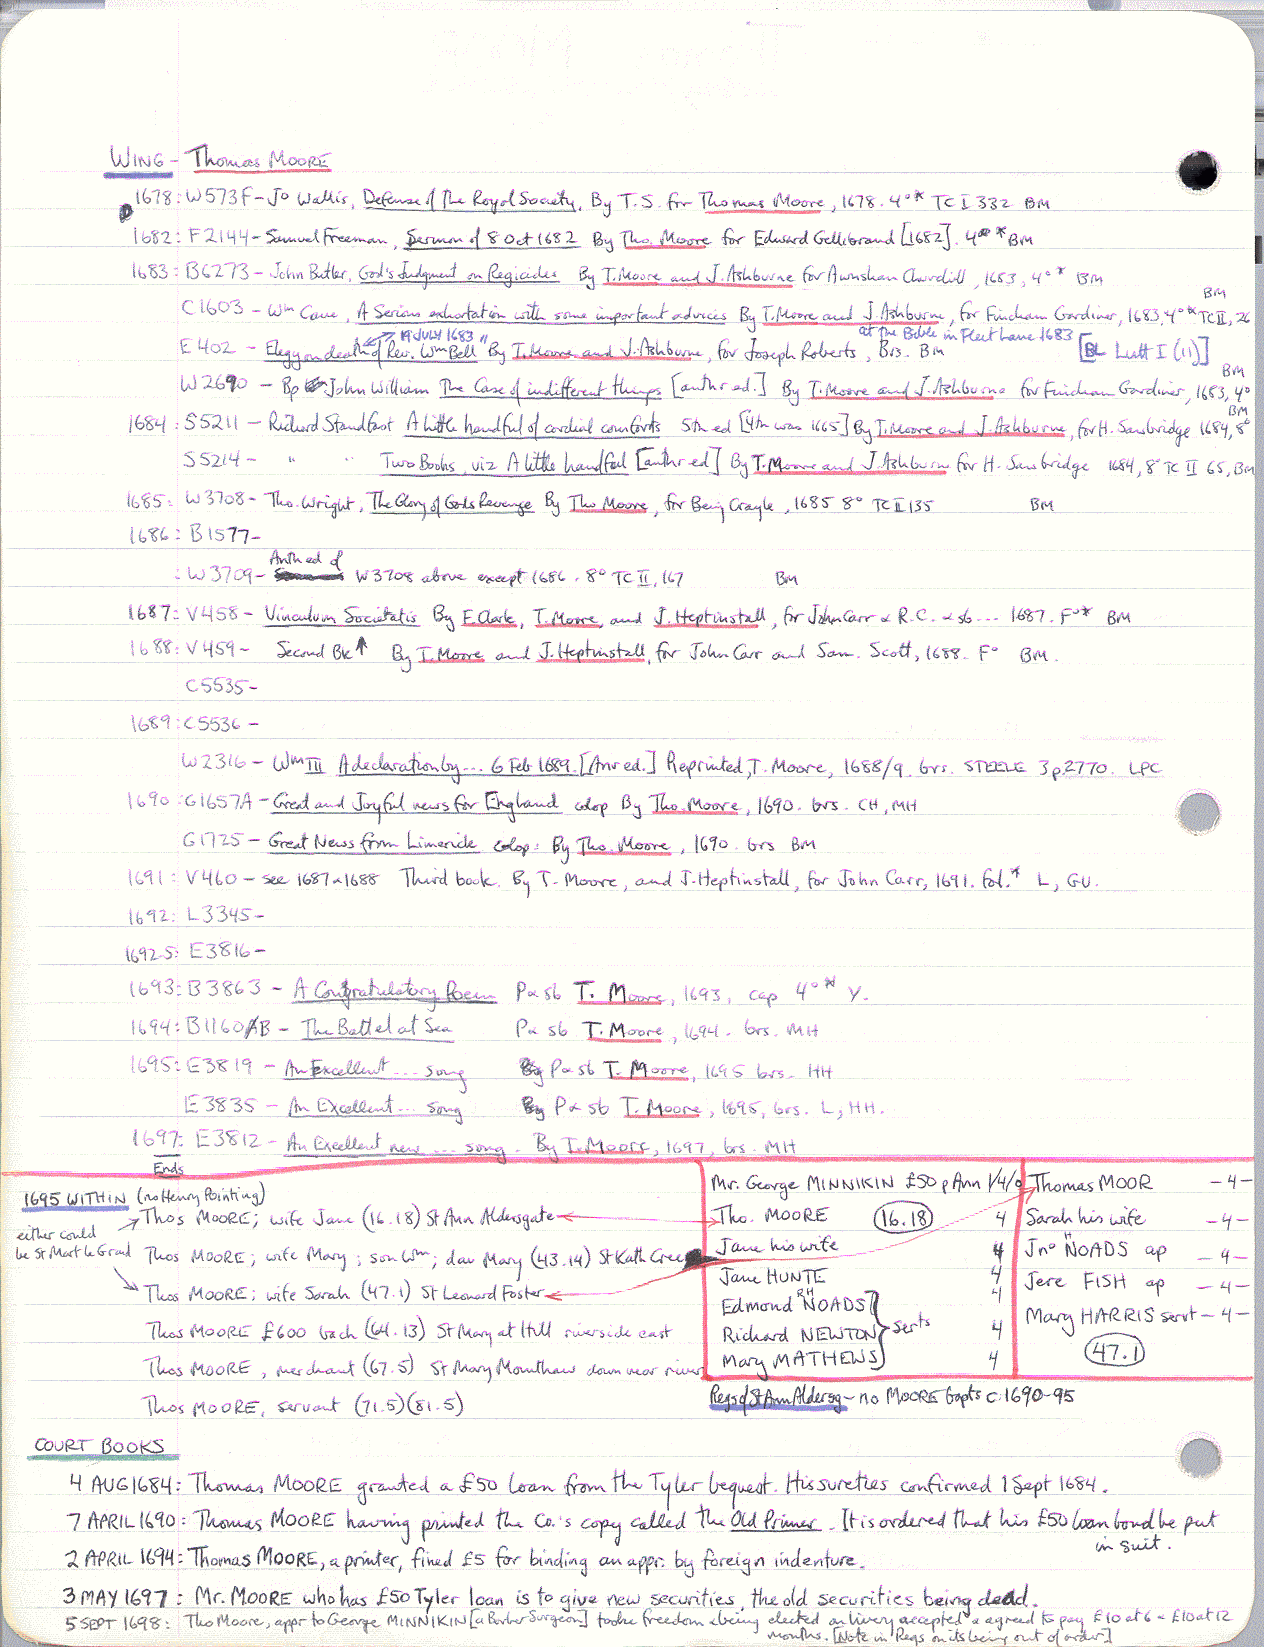 WING - Thomas MOORE
1678: W573F - Jo Wallis, Defense of The Royal Society, By T.S. for Thomas Moore, 1678. 4°* TC I 332 BM
1682: F2144 - Samuel Freeman, Sermon of 8 Oct 1682 By Tho. Moore for Edward Gellibrand [1682]. 4°* BM
1683: B6273 - John Butler, God's Judgment on Regicides By T. Moore and J. Ashburne for Awnsham Churchill, 1683, 4°* BM
BM
C1603 - Wm Cave, A Serious exhortation with some important advices By T. Moore and J. Ashburne, for Fincham Gardiner, 1683, 4°* TC II, 26
19 JULY 1683 " at the Bible in Fleet Lane 1683
E402 - Elegy on death of Rev. Wm Bell By T. Moore and J. Ashburne, for Joseph Roberts, Brs. BM [BL Lutt I (11)]
BM
W2690 - Bp John William The Case of indifferent things [anthr ed.] By T. Moore and J. Ashburne for Fincham Gardiner, 1683, 4°
BM
1684: S5211 - Richard Standfast A little handful of cordial comforts 5th ed [4th was 1665] By T. Moore and J. Ashburne, for H. Sawbridge 1684, 8°
S5214 - " " Two Books, viz A little handful [anthr ed] By T. Moore and J. Ashburn for H. Sawbridge 1684, 8° TC II 65, BM
1685: W3708 - Tho. Wright, The Glory of Gods Revenge By Tho Moore, for Benj Crayle, 1685 8° TC II 135 BM
1686: B1577-
Anth ed of
: W3709 - W3708 above except 1686. 8° TC II, 167 BM
1687: V458 - Vinculum Societatis By F. Clark, T. Moore, and J. Heptinstall, for John Carr & R.C. & sb ... 1687. F°* BM
1688: V459 - Second Bk ↑ By T. Moore and J. Heptinstall, for John Carr and Sam. Scott, 1688. F° BM.
C5535 -
1689: C5536 -
W2316 - Wm III A declaration by ... 6 Feb 1689. [Anr ed.] Reprinted, T. Moore, 1688/9. brs. STEELE 3 p. 2770. LPC
1690: G1657A - Great and Joyful news for England colop By Tho. Moore, 1690. brs. CH, MH
G1725 - Great News from Limerick colop: By Tho. Moore, 1690. brs BM
1691: V460 - see 1687 & 1688 Third book. By T. Moore, and J. Heptinstall, for John Carr, 1691. fol.* L, GU.
1692: L3345 -
1692-5: E3816 -
1693: B3863 - A Congratulatory Poem P & sb T. Moore, 1693, cap 4°* Y.
1694: B1160AB - The Battel at Sea P & sb T. Moore, 1694. brs. MH
1695: E3819 - An Excellent ... song P & sb T. Moore, 1695 brs. HH
E3835 - An Excellent ... song P & sb T. Moore, 1695, brs. L, HH.
1697: E3812 - An Excellent new ... song. By T. Moore, 1697, brs. MH
Ends
1695 WITHIN (no Henry Pointing)
either could be St Mart le Grand
Thos MOORE; wife Jane (16.18) St Ann Aldersgate
Thos MOORE; wife Mary; son Wm; dau Mary (43.14) St Kath Cree
Thos MOORE; wife Sarah (47.1) St Leonard Foster
Thos MOORE £600 bach (64.13) St Mary at Hill riverside east
Thos MOORE, merchant (67.5) St Mary Mounthaw down near river
Thos MOORE, servant (71.5) (81.5)
Mr. George MINNIKIN £50 p Ann 1/4/0
Tho. MOORE (16.18) 4
Jane his wife 4
Jane HUNTE 4
Edmond RHOADS 4
Richard NEWTON } Serts 4
Mary MATHEWS 4
Thomas MOOR - 4 -
Sarah his wife - 4 -
Jno NOADS ap - 4 -
Jere FISH ap - 4 -
Mary HARRIS servt - 4 -
(47.1)
Regs of St Ann Aldersg - no MOORE bapts c. 1690-95
COURT BOOKS
4 AUG 1684: Thomas MOORE granted a £50 loan from the Tyler bequest. His sureties confirmed 1 Sept 1684.
7 APRIL 1690: Thomas MOORE having printed the Co.'s copy called the Old Primer. It is ordered that his £50 loan bond be put
in suit.
2 APRIL 1694: Thomas MOORE, a printer, fined £5 for binding an appr. by foreign indenture.
3 MAY 1697: Mr. MOORE who has £50 Tyler loan is to give new securities, the old securities being dead.
5 SEPT 1698: Tho Moore, appr to George MINNIKIN [a Barber Surgeon] took freedom & being elected on livery accepted & agreed to pay £10 at 6 & £10 at 12
months. [Note in Regs on its being out of order]